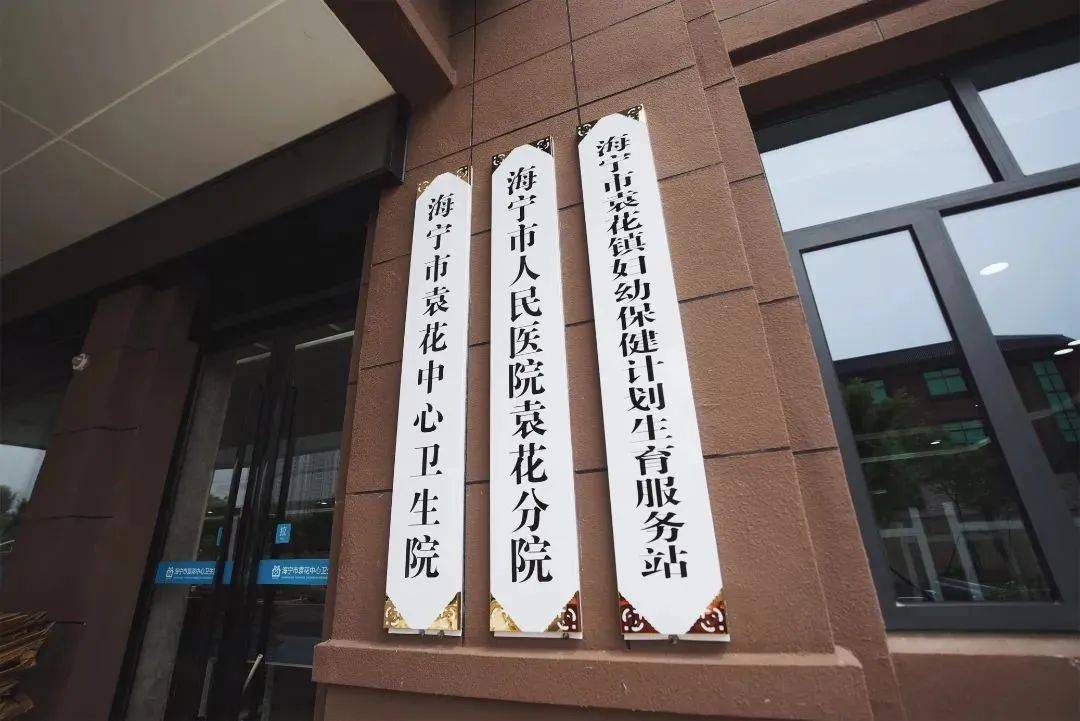 海宁市袁花中心卫生院
海宁市人民医院袁花分院
海宁市袁花镇妇幼保健计划生育服务站
拉
海宁市袁花中心卫生
海宁市袁花中心卫生